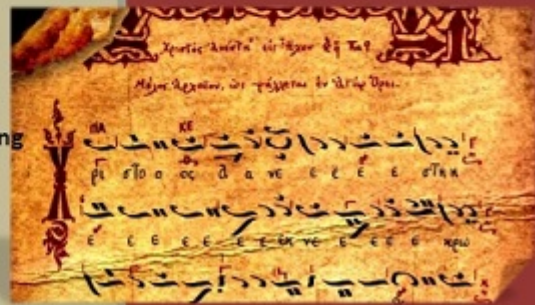 Χριστὸς Ἀνέστη εἰς Ἦχον Πα
Μέλος Ἀρχαῖον, ὡς ψάλλεται ἐν Ἁγίῳ Ὄρει.
ng
ΠΑ ΚΕ
Χ ρι στο ο ος Α α νε ε ε ε ε στη η
ε ε ε ε ε ε ε εκ νε ε ε ε ε κρω